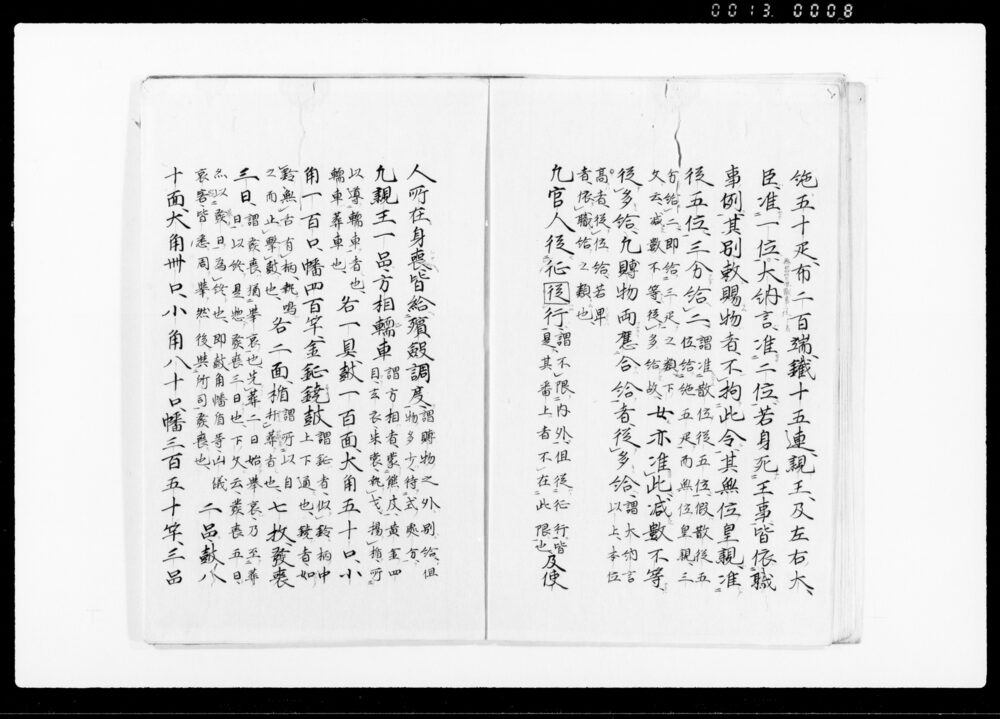 0013 0008
絁五十疋、布二百端、鐵十五連、親王及左右大
臣、准一位、大納言、准二位、若身死王事、皆依職
事例、其別敕賜物者、不拘此令、其無位皇親、准
從五位、三分給二、謂准散位從五位、假散從五位給絁五疋、而無位皇親、三
分給二、即給三疋之類、下
文云減數不等從多給故、女亦准此、減數不等、
從多給、凡賻物兩應合給者、從多給、謂大納言以上、本位
高者、從位給、若卑
者、依職給之類也、
凡官人從征從行、謂不限内外、但從征行皆是、其番上者、不在此限也、及使
人所在身喪、皆給殯殮調度、謂賻物之外別給、但物多少、待式處分、
凡親王一品、方相轜車、謂方相者、蒙熊皮、黄金四目、玄衣朱裳、執戈揚楯、所
以導轜車者也、
轜車葬車也、各一具、鼓一百面、大角五十口、小
角一百口、幡四百竿、金鉦鐃鼓、謂鉦者、似鈴柄中上下通也、鐃者如
鈴無舌有柄、執鳴
之而止擊鼓也、各二面、楯、謂所以自扞葬者也、七枚、發喪
三日、謂發喪猶舉哀也、先葬二日始舉哀、乃至葬日、以終、是也、發喪三日也、下文云發喪五日、
亦以發日為終也、即鼓角幡盾等山儀
哀客皆悉周舉、然後與所司發喪也、二品、鼓八
十面、大角卌口、小角八十口、幡三百五十竿、三品